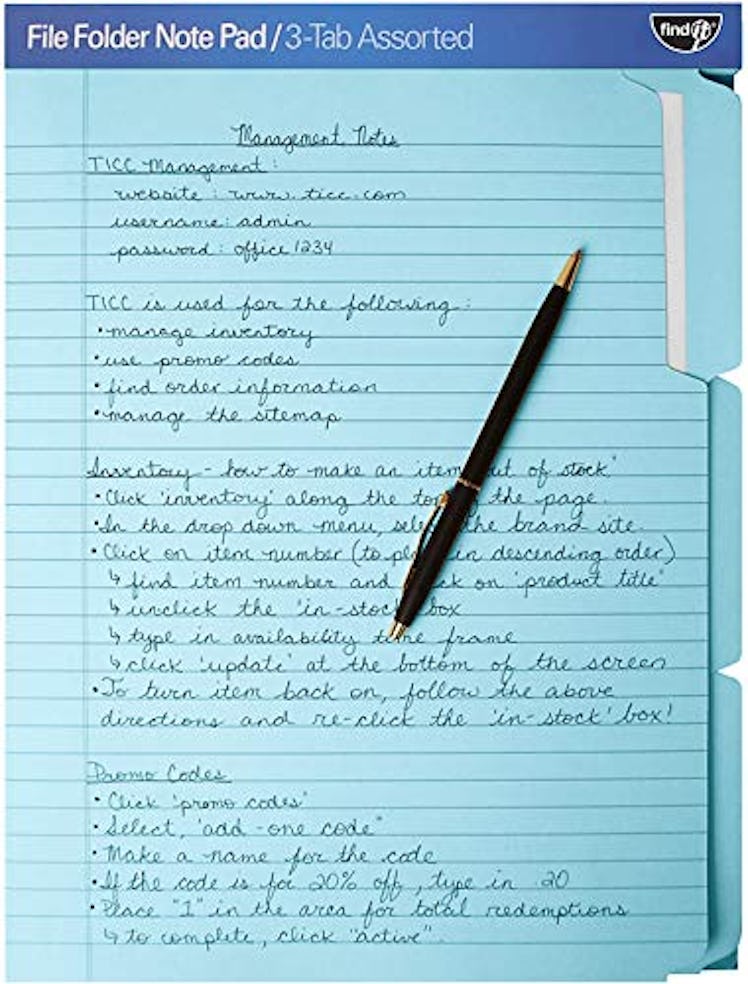 File Folder Note Pad / 3-Tab Assorted
find it
Management Notes
TICC Management:
website: www.ticc.com
username: admin
password: office1234
TICC is used for the following:
• manage inventory
• use promo codes
• find order information
• manage the sitemap
Inventory - how to make an item out of stock"
• Click 'inventory' along the top of the page.
• In the drop down menu, select the brand site.
• Click on item number (to in descending order)
↳ find item number and click on 'product title'
↳ unclick the 'in-stock' box
↳ type in availability time frame
↳ click 'update' at the bottom of the screen
• To turn item back on, follow the above
directions and re-click the 'in-stock' box!
Promo Codes
• Click 'promo codes'
• Select, 'add-one code"
• Make a name for the code
• If the code is for 20% off, type in 20
• Place "1" in the area for total redemptions
↳ to complete, click "active".